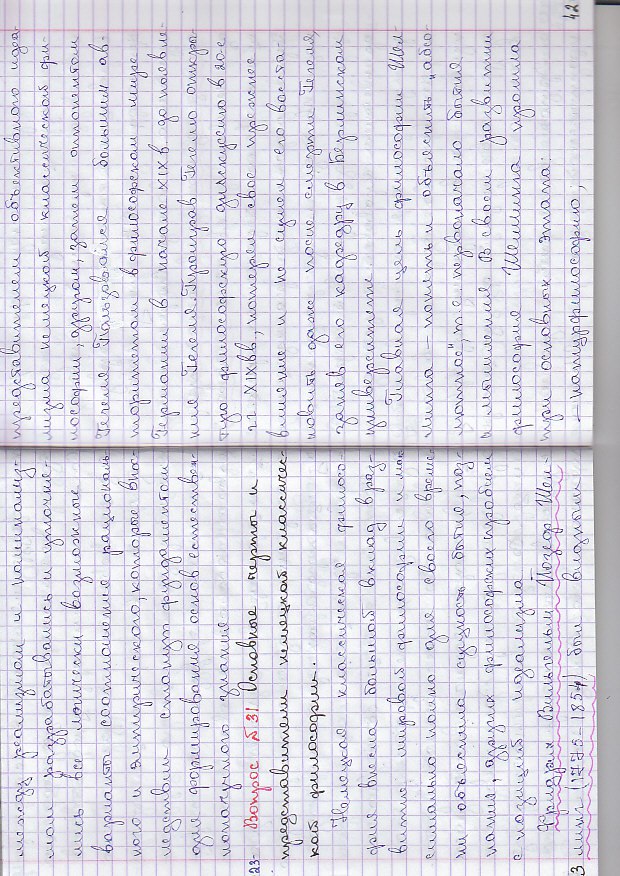 между реализмом и номинализ-
мом разрабатывались и уточня-
лись все логически возможные
варианты соотношения рациональ-
ного и эмпирического, которые впос-
ледствии станут фундаментом
для формирования основ естествен-
нонаучного знания
23- Вопрос №31 Основные черты и
представители немецкой классичес-
кой философии.
Немецкая классическая филосо-
фия внесла большой вклад в раз-
витие мировой философии и мак
симально полно для своего време-
ни объяснила сущность бытия, поз-
нания, других философских проблем
с позиций идеализма
Фридрих Вильгельм Йозеф Шел-
3 линг (1775-1854) был видным
представителем объективного идеа-
лизма немецкой классической фи-
лософии, другом, затем оппонентом
Гегеля. Пользовался большим ав-
торитетом в философском мире
Германии в начале XIXв до появле-
ния Гегеля. Проиграв Гегелю откры-
тую философскую дискуссию в 20-е
гг XIXвв, потерял свое прежнее
влияние и не сумел его восста-
новить даже после смерти Гегеля,
заняв его кафедру в Берлинском
университете
Главная цель философии Шел-
линга – понять и объяснить "абсо-
лютное", т.е. первоначало бытия
и мышления. В своем развитии
философия Шеллинга прошла
три основных этапа:
– натурфилософию,
42